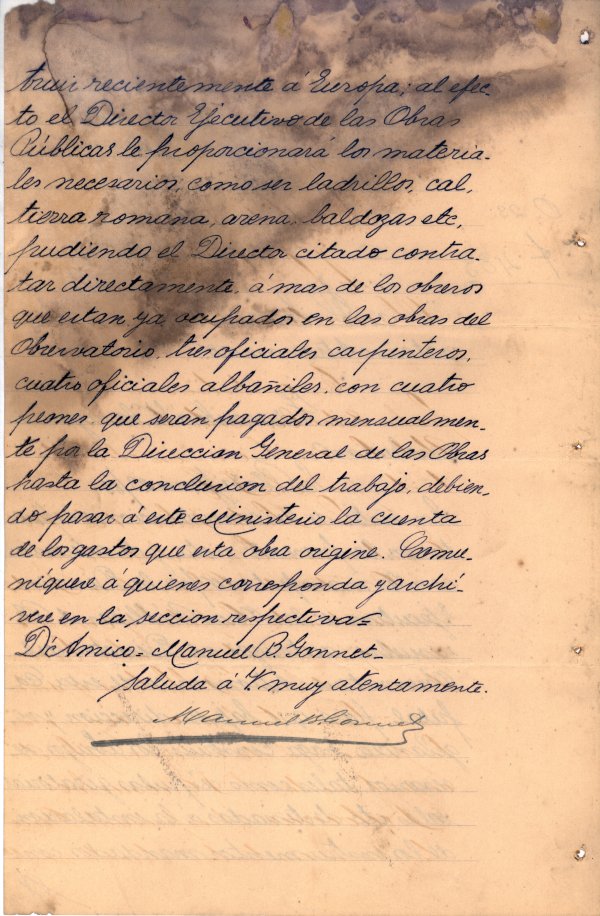 truir recientemente á Europa; al efec-
to el Director Ejecutivo de las Obras
Públicas le proporcionará los materia-
les necesarios, como ser ladrillos, cal,
tierra romana, arena, baldozas etc,
pudiendo el Director citado contra-
tar directamente, á mas de los obreros
que estan ya ocupados en las obras del
Observatorio, tres oficiales carpinteros,
cuatro oficiales albañiles, con cuatro
peones, que serán pagados mensualmen-
te por la Direccion General de las Obras
hasta la conclusion del trabajo, debien-
do pasar á este Ministerio la cuenta
de los gastos que esta obra origine. Comu-
niquese á quienes corresponda y archi-
vese en la seccion respectiva=
D'Amico - Manuel B. Gonnet -
Saluda á V. muy atentamente.
Manuel B. Gonnet